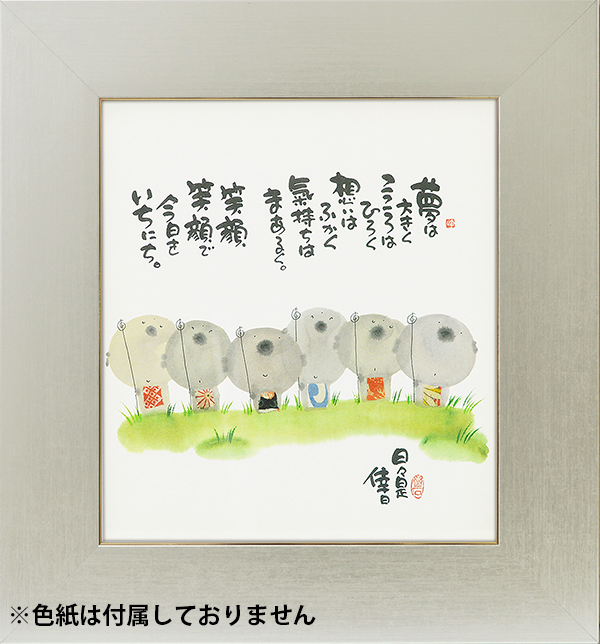 夢は
大きく
こころは
ひろく
想いは
ふかく
氣持ちは
まあるく。
笑顔
笑顔で
今日を
いちにち。
日々是
倖日
※色紙は付属しておりません